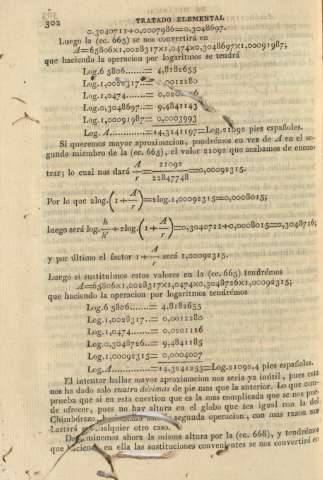 302 TRATADO ELEMENTAL
0.3040711+0,0007986=0,3048697.
Luego la (ec. 665) se nos convertirá en
A=65806×1,0028317×1,0474×0,3048697×1,00091987;
que haciendo la operacion por logaritmos se tendrá
Log.65806.......= 4,8182655
Log.1,0028317..= 0,0012280
Log.1,0474......= 0,0201126
Log.0,3048697..= 9,4841143
Log.1,00091987= 0,0003993
Log. A............=14,3241197=Log.21092 pies españoles.
Si queremos mayor aproximacion, pondrémos en vez de A en el se-
gundo miembro de la (ec. 665), el valor 21092 que acabamos de encon-
trar; lo cual nos dará A/r = 21092/22847748 =0,00092315.
Por lo que 2log.(1+A/r)=2log.1,00092315=0,0008015;
luego será log.h/h'+2log.(1+A/r)=0,3040711+0,0008015=0,3048716;
y por último el factor 1+A/r será 1,00092315.
Luego si sustituimos estos valores en la (ec. 665) tendrémos
A=65806×1,0028317×1,0474×0,3048726×1,00092315;
que haciendo la operacion por logaritmos tendrémos
Log.65806.......= 4,8182655
Log.1,0028317..= 0,0012280
Log.1,0474......= 0,0201126
Log.0,3048726..= 9,4841185
Log.1,00092315= 0,0004007
Log.A............=14,3241253=Log.21092,4 pies españoles.
El intentar hallar mayor aproximacion nos seria ya inútil, pues esta
nos ha dado solo cuatro décimas de pie mas que la anterior. Lo que com-
prueba que si en esta cuestion que es la mas complicada que se nos pue-
de ofrecer, pues no hay altura en el globo que sea igual con la del
Chimborazo, segunda operacion, con mas razon nos
bastará cualquier otro caso.
Determinemos ahora la misma altura por la (ec. 668), y tendrémos
que haciendo en ella las sustituciones convenientes se nos convertirá en